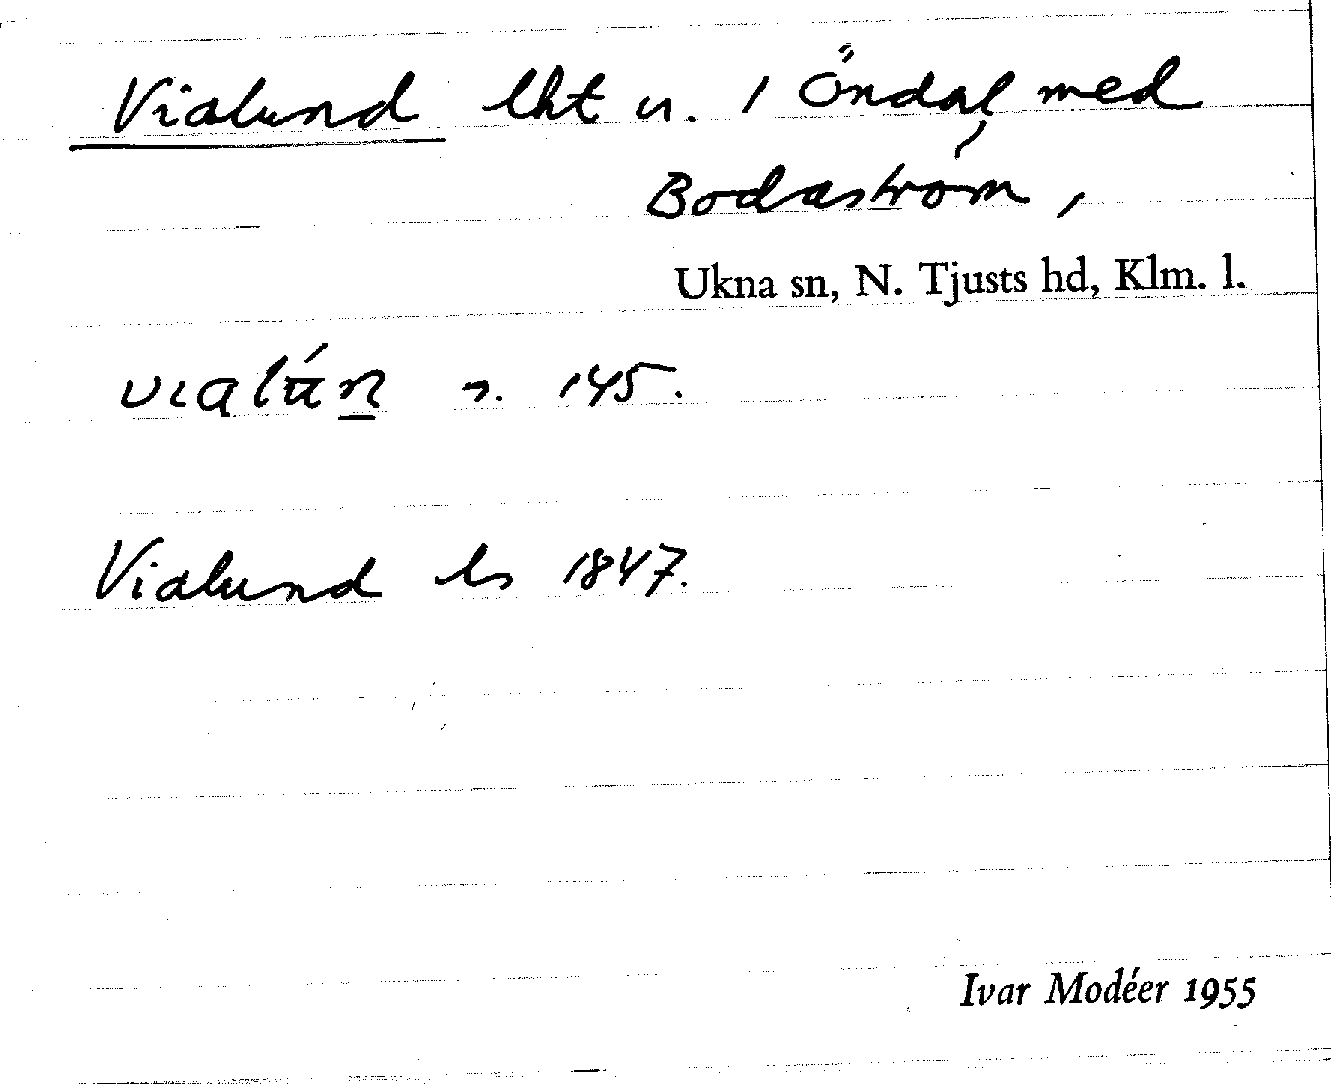 Vialund lht u. / Öndal med
Bodaström,
Ukna sn, N. Tjusts hd, Klm. l.
145.
Vialund ls 1847.
Ivar Modéer 1955